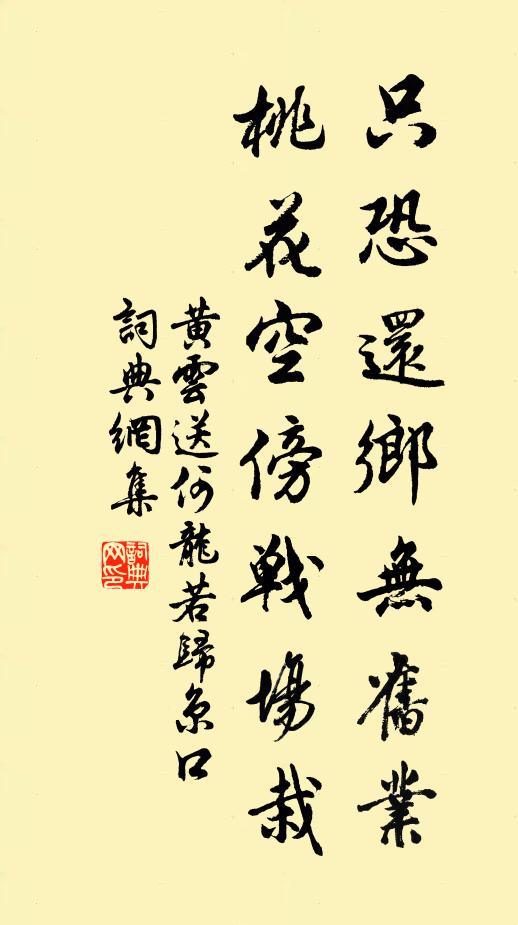 只恐還鄉無舊業
桃花空傍戰場栽
黃雲送何龍若歸京口
詞典網集
詞典
网印